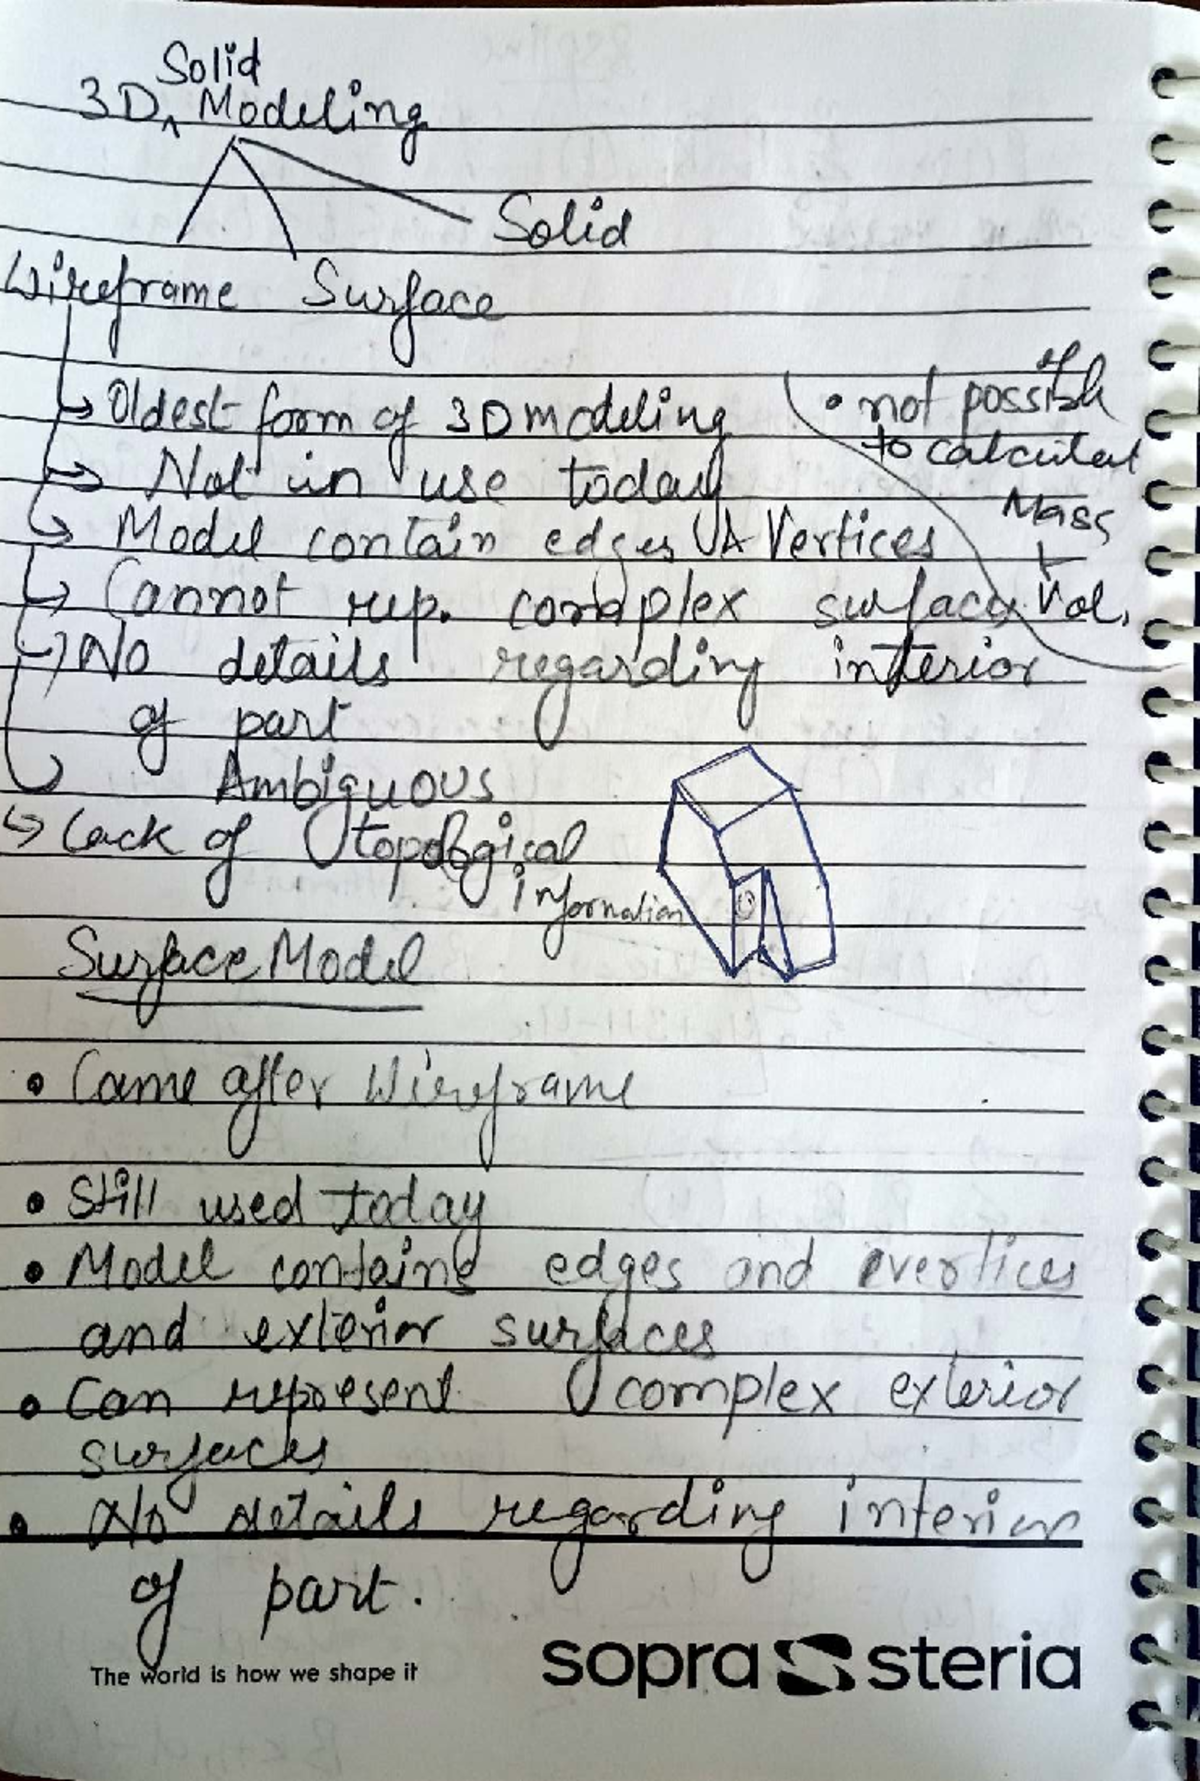 3D Solid Modeling
Solid
Wireframe Surface
→ Oldest form of 3D modeling
→ Not in use today
→ Model contain edges & Vertices
→ Cannot rep. complex surfaces
→ No details regarding interior
of part
Ambiguous
→ Lack of topological
information
• not possible
to calculat
Mass
+
Vol.
Surface Model
• Came after Wireframe
• Still used today
• Model contains edges and vertices
and exterior surfaces
• Can represent complex exterior
surfaces
• No details regarding interior
of part.
The world is how we shape it
sopra steria